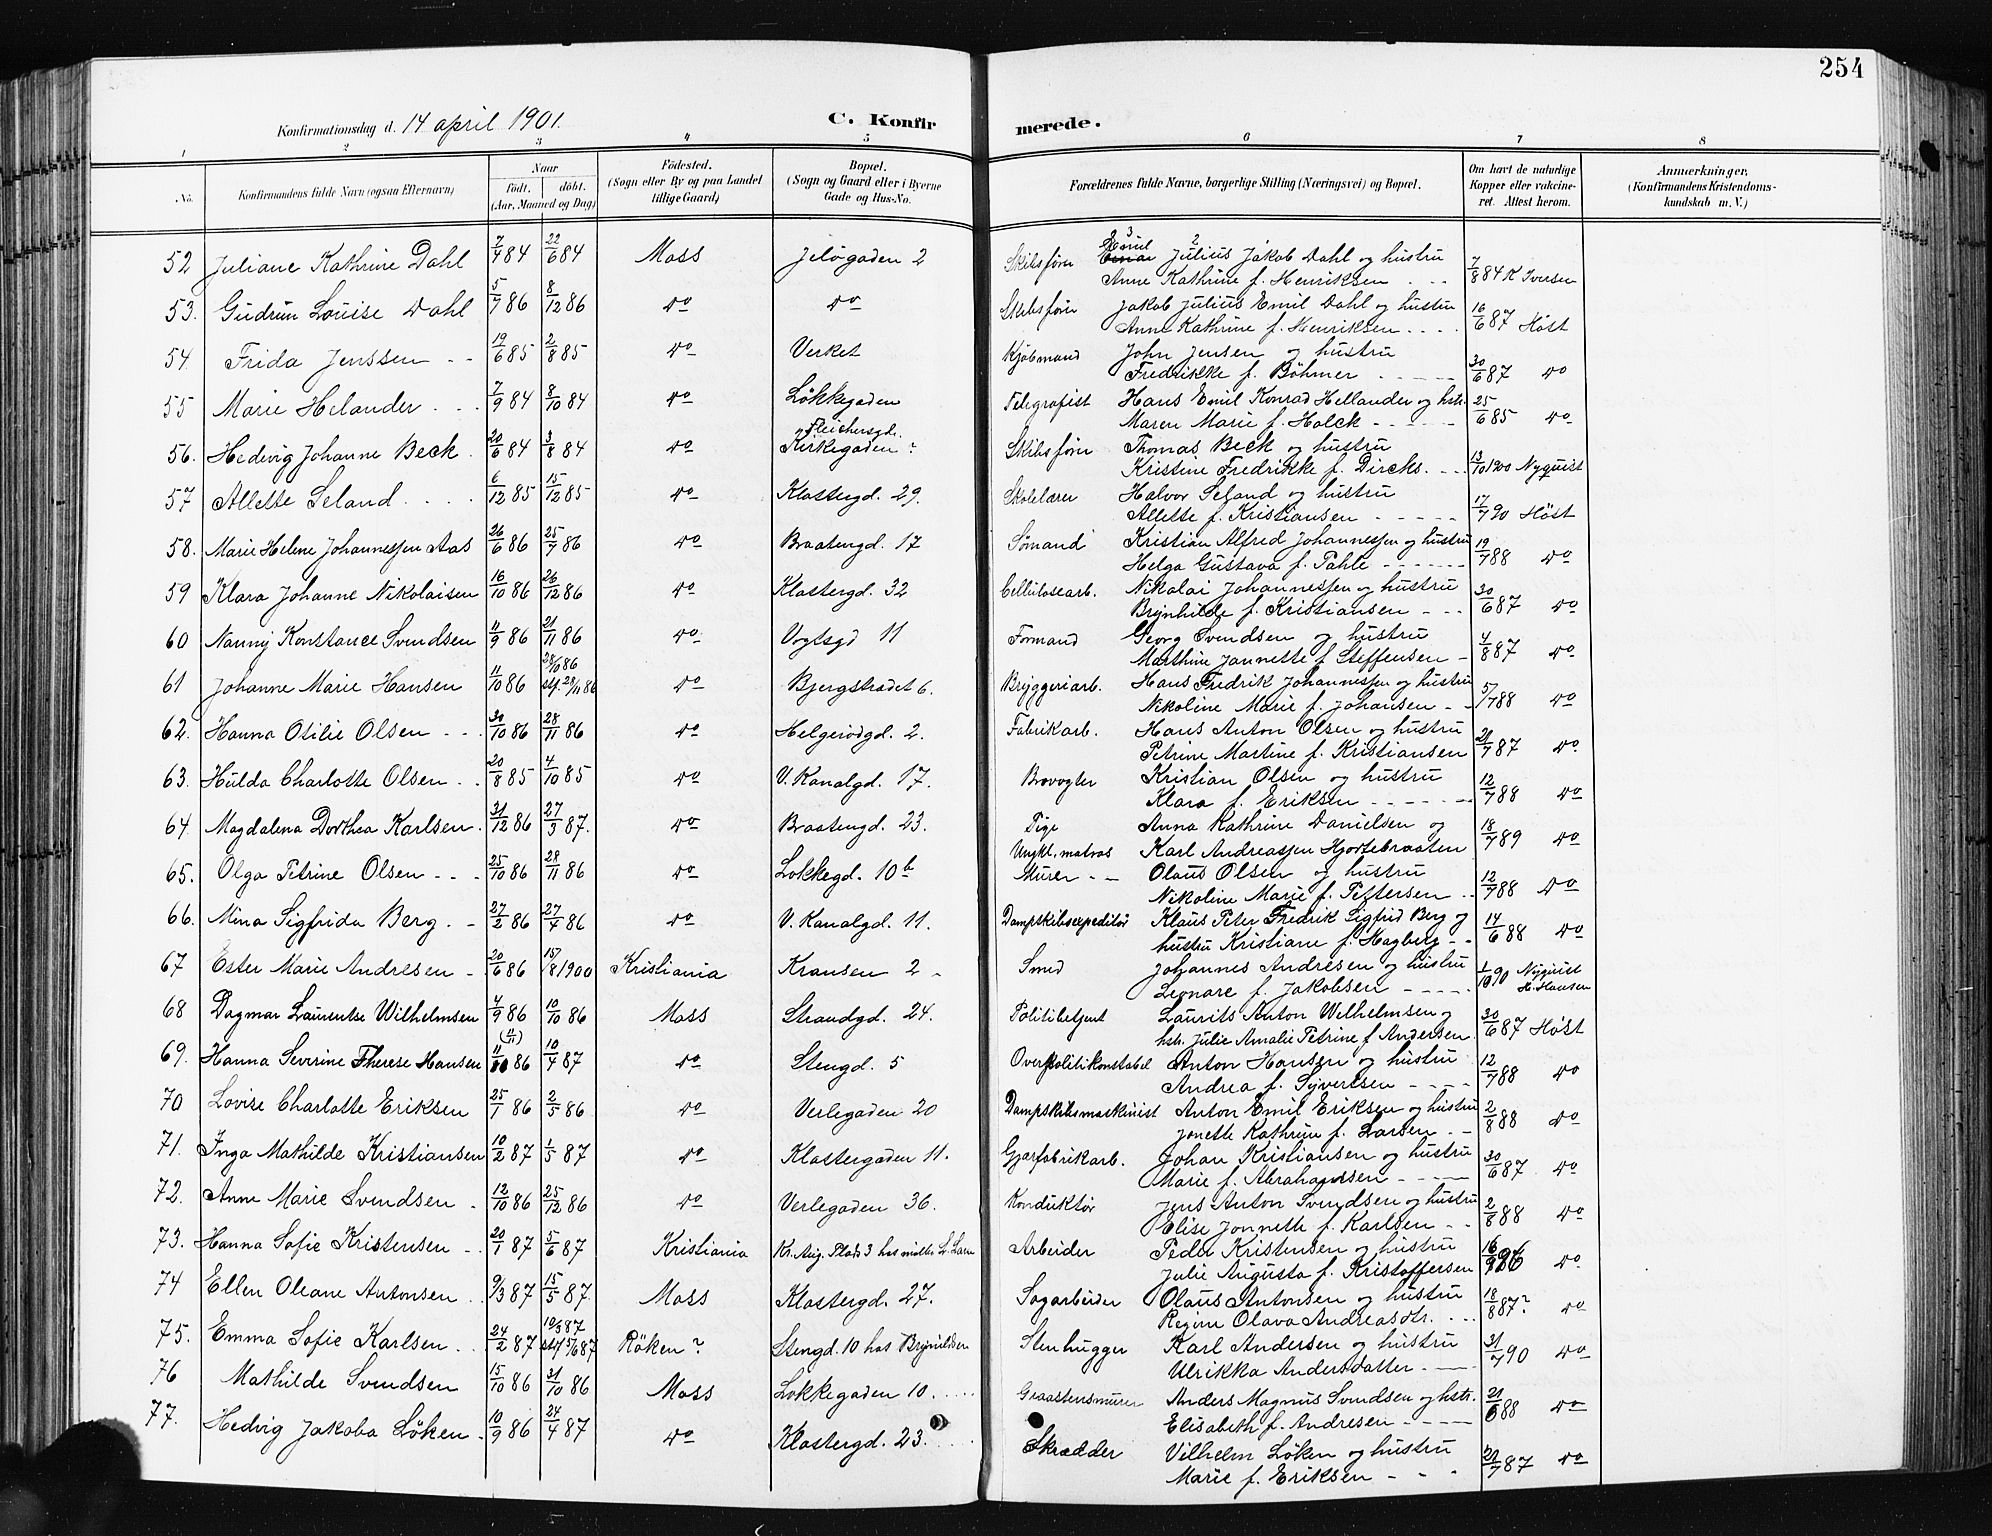 254
Konfirmationsdag d. 14 april 1901. C. Konfirmerede.
1 2 3 4 5 6 7 8
No. Konfirmandens fulde Navn (ogsaa Efternavn) Naar født. døbt. (Aar, Maaned og Dag) Fødested. (Sogn eller By og paa Landet tillige Gaard) Bopæl. (Sogn og Gaard eller i Byerne Gade og Hus-No. Forældrenes fulde Navne, borgerlige Stilling (Næringsvei) og Bopæl. Om havt de naturlige Kopper eller vakcineret. Attest herom. Anmærkninger, (Konfirmandens Kristendomskundskab m. V.)
52 Juliane Kathrine Dahl 7/4 84 22/6 84 Moss Jeløgaden 2 Skibsfører Emil Julius Jakob Dahl og hustru
Anne Kathrine f. Henriksen 7/8 84 K Iversen
53. Gudrun Louise Dahl 5/7 86 8/12 86 do do Skibsfører Jakob Julius Emil Dahl og hustru
Anne Kathrine f. Henriksen 16/6 87 Høst
54. Frida Jenssen 19/6 85 2/8 85 do Verket Kjøbmand John Jensen og hustru
Fredrikke f. Böhmer 30/6 87 do
55 Marie Helander 7/9 84 8/10 84 do Løkkegaden Telegrafist Hans Emil Konrad Hellander og hstr.
Maren Marie f. Holck 25/6 85 do
56. Hedevig Johanne Beck 20/6 84 3/8 84 do Fleichersgd. Kirkegaden? Skibsfører Thomas Beck og hustru
Kristine Fredrikke f. Dircks. 13/10 1900 Nyquist
57 Allette Seland 6/12 85 15/12 85 do Klostergd. 29. Skolelærer Halvor Seland og hustru
Allette f. Kristiansen 17/7 90 Høst
58. Marie Helene Johannessen Aas 26/6 86 25/7 86 do Braatengd. 17 Sømand Kristian Alfred Johannessen og hustru
Helga Gustava f. Pahle 19/7 88 do
59 Klara Johanne Nikolaisen 16/10 86 26/12 86 do Klostergd. 32 Cellulosearb. Nikolai Johannessen og hustru
Brynhilde f. Kristiansen 30/6 87 do
60 Nanny Konstance Svendsen 11/9 86 21/11 86 do Vogtsgd 11 Formand Georg Svendsen og hustru
Marthine Jannette f. Steffensen 4/8 87 do
61 Johanne Marie Hansen 11/10 86 28/10 86 stf. 28/11 86 do Bjergstrædet 6. Bryggeriarb. Hans Fredrik Johannessen og hustru
Nikoline Marie f. Johansen 5/7 88 do
62. Hanna Otilie Olsen 30/10 86 28/11 86 do Helgerødgd. 2. Fabrikarb. Hans Anton Olsen og hustru
Petrine Martine f. Kristiansen 21/7 87 do
63. Hulda Charlotte Olsen 20/8 85 4/10 85 do V. Kanalgd. 17. Brovogter Kristian Olsen og hustru
Klara f. Eriksen 12/7 88 do
64. Magdalena Dorthea Karlsen 31/12 86 27/3 87. do Braatengd. 23. Pige Anna Kathrine Danielsen og
Ungkl. matros Karl Andreassen Hjortebraaten 18/7 89 do
65. Olga Petrine Olsen 25/10 86 28/11 86 do Løkkegd. 10b Murer Olaus Olsen og hustru
Nikoline Marie f. Pettersen 12/7 88 do
66. Mina Sigfrida Berg 27/2 86 27/4 86 do V. Kanalgd. 11. Dampskibsexpeditør Klaus Peter Fredrik Sigfrid Berg og
hustru Kristiane f. Hagberg 14/6 88 do
67 Ester Marie Andresen 20/6 86 15/8 1900 Kristiania Kransen 2 Smed Johannes Andresen og hustru
Leonare f. Jakobsen 1/10 90 Nyquist H. Hansen
68 Dagmar Laurentse Wilhelmsen 4/9 86 10/10 86 Moss Strandgd. 24. Politibetjent Laurits Anton Wilhelmsen og
hstr. Julie Amalie Petrine f Andersen 30/6 87 Høst
69. Hanna Severine Therese Hansen (11/11) 11/10 86 10/4 87 do Stengd. 5 Overpolitikonstabel Anton Hansen og hustru
Andrea f. Syvertsen 12/7 88 do
70 Lovise Charlotte Eriksen 25/1 86 2/5 86 do Verlegaden 20 Dampskibsmaskinist Anton Emil Eriksen og hustru
Jonette Kathrine f. Larsen 2/8 88 do
71. Inga Mathilde Kristiansen 10/2 87 1/5 87 do Klostergaden 11. Gjærfabrikarb. Johan Kristiansen og hustru
Marie f. Abrahamsen 30/6 87 do
72. Anne Marie Svendsen 12/10 86 25/12 86 do Verlegaden 36. Konduktør Jens Anton Svendsen og hustru
Elise Jonnette f. Karlsen 2/8 88 do
73. Hanna Sofie Kristensen 20/1 87 5/6 87 Kristiania Kr. Aug. Plads 3 hos Arbeider Peder Kristensen og hustru
Julie Augusta f. Kristoffersen 16/9 96 do
74 Ellen Oleane Antonsen 9/3 87 15/5 87. Moss Klostergd. 27. Sagarbeider Olaus Antonsen og hustru
Regine Olava Andreasdtr. 18/8 87? do
75. Emma Sofie Karlsen 24/2 87 10/3 87 stf 5/6 87 Røken? Stengd. 10 hos Brynildsen Stenhugger Karl Andersen og hustru
Ulrikka Andersdatter 31/7 90 do
76 Mathilde Svendsen 15/10 86 31/10 86 Moss Løkkegaden 10. Graastensmurer Anders Magnus Svendsen og hstr.
Elisabeth f. Andresen 21/6 88 do
77. Hedvig Jakoba Løken 10/9 86 24/4 87 do Klostergd. 23. Skrædder Vilhelm Løken og hustru
Marie f. Eriksen 21/7 87 do